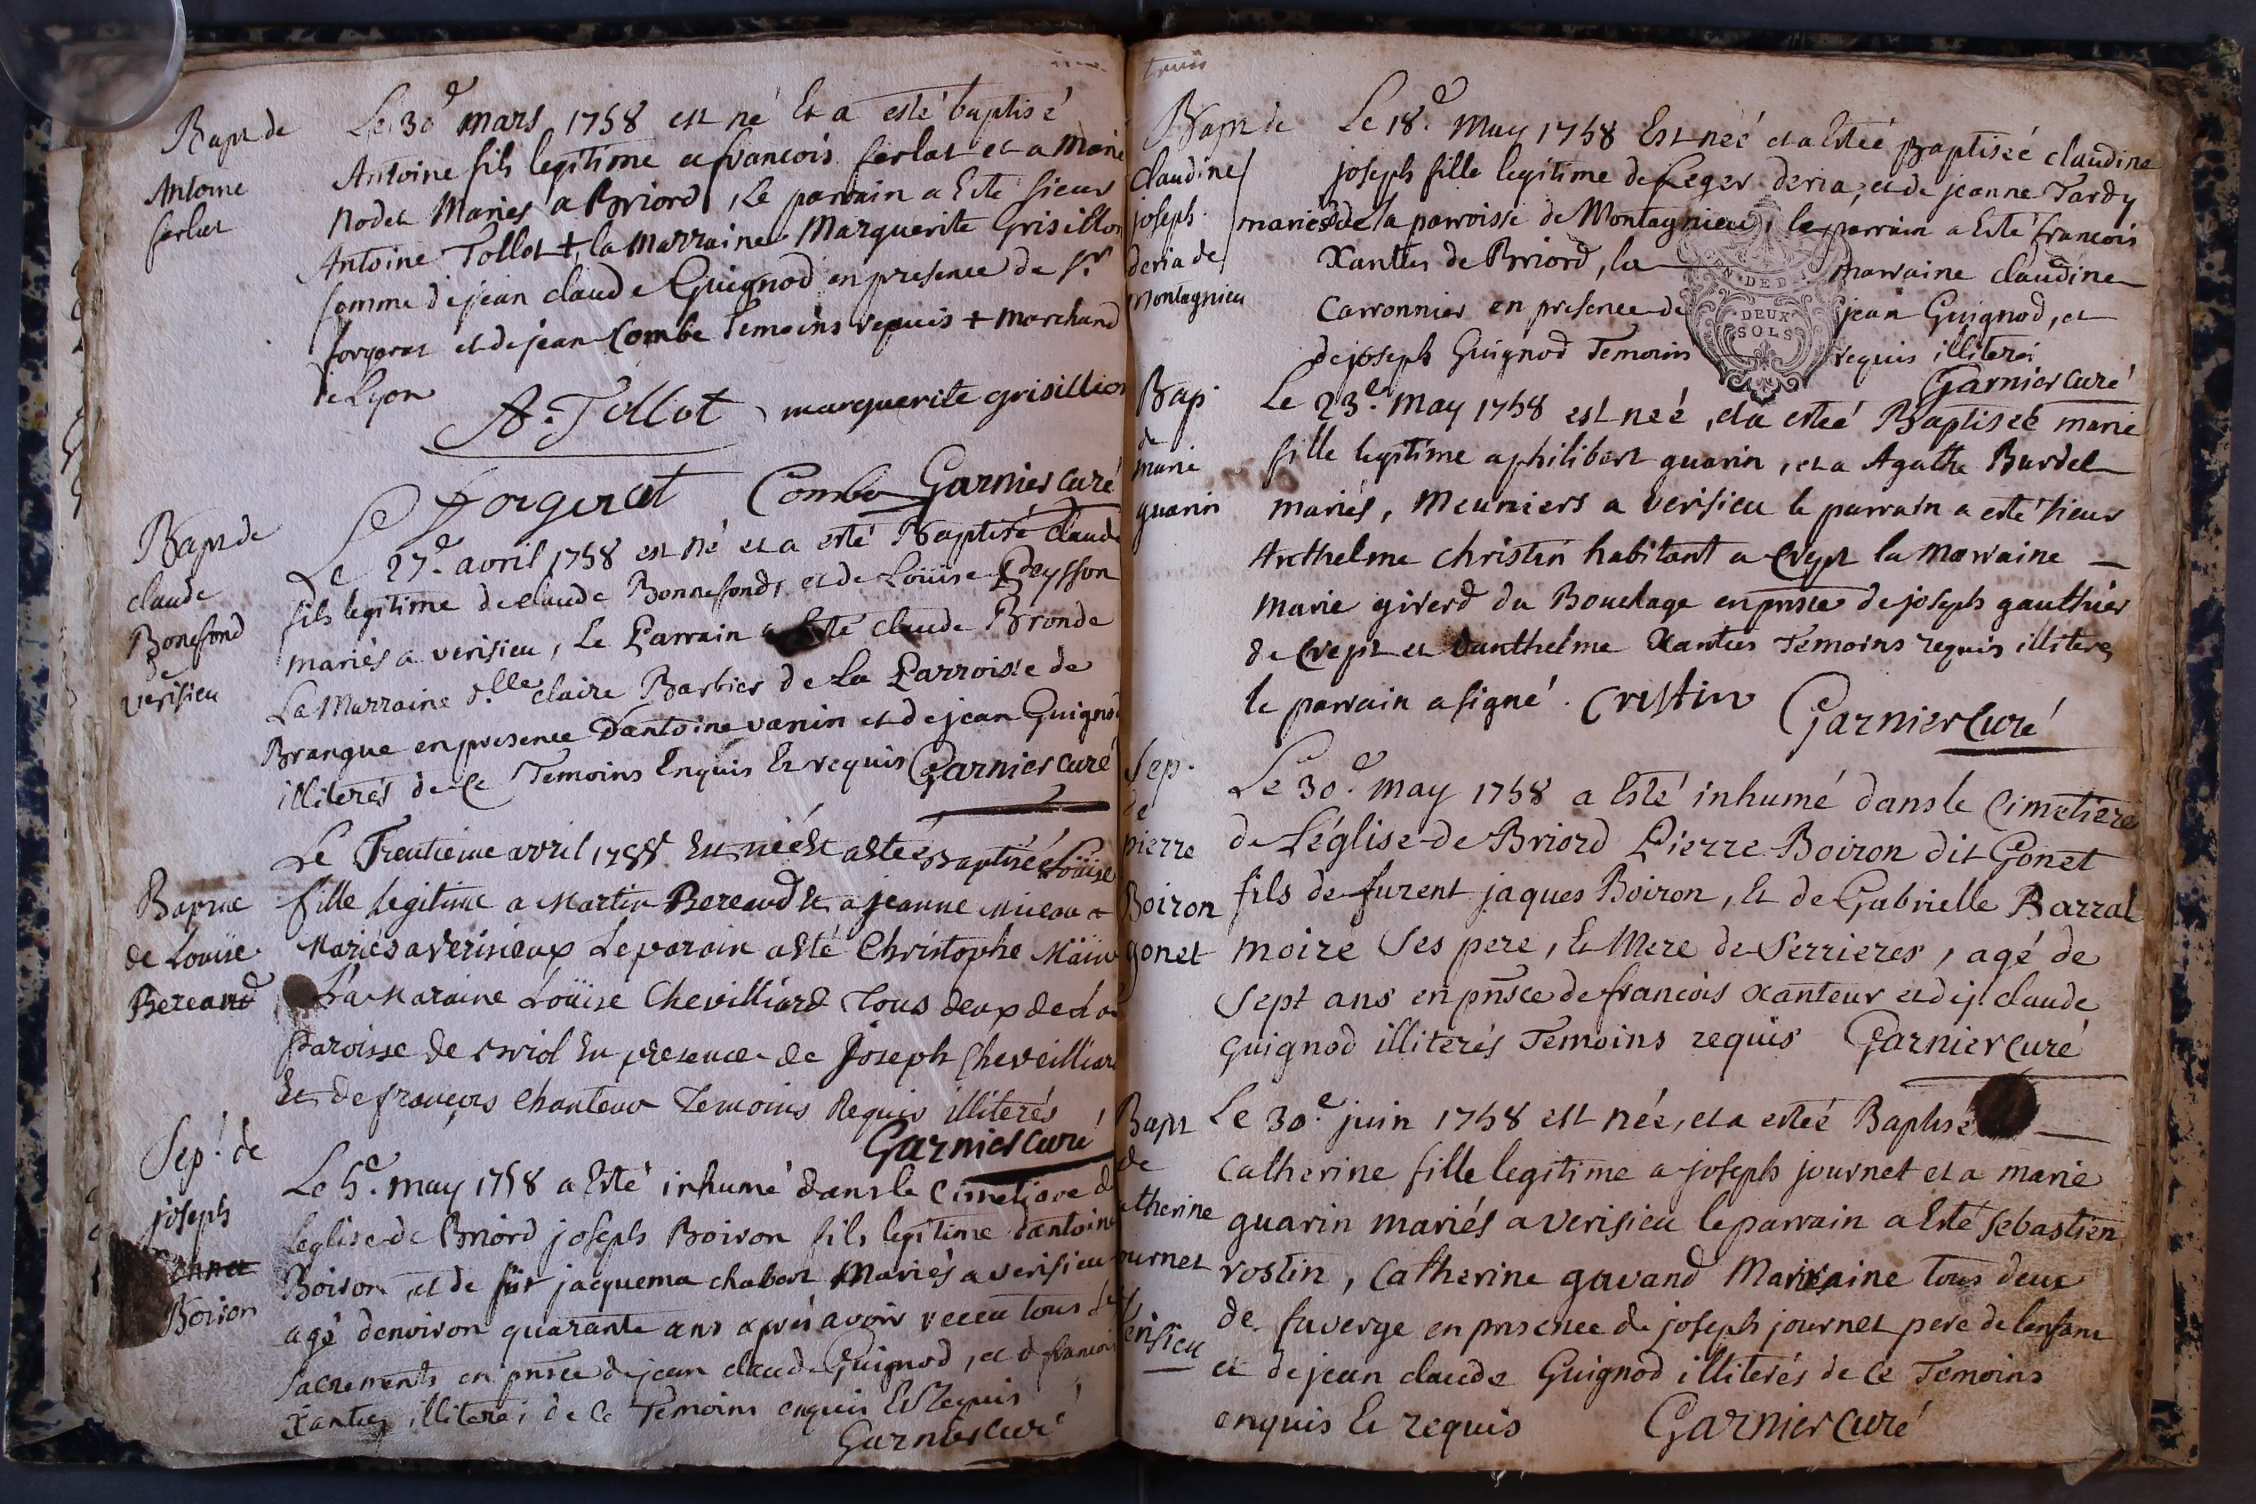 Bapt de
Antoine
ferlat
Le 30e mars 1758 est né Et a esté baptisé
Antoine fils legitime a francois ferlat et a Marie
nodet Maries a Briord, Le parrain a Esté sieur
Antoine Tollot + la Marraine Marguerite Grisillon
femme de jean claude Guignod en presence de sr
forgerat et de jean Combe Temoins requis + marchand
de Lyon
A. Tollot marguerite grisillion
forgerat Combe Garnier curé
Bapt de
claude
Bonefond
de
verisieu
Le 27e avril 1758 est né et a esté Baptisé claude
fils legitime de claude Bonnefond, et de Loüise Peysson
mariés a verisieu, Le Parrain a Esté claude Bronde
La Marraine dlle claire Barbier de La Parroisse de
Brangue en presence d'antoine vanin et de jean Guignod
illiterés de Ce Temoins Enquis Et requis Garnier curé
Bapme
de Louise
Bereaud
Le Trentieme avril 1758 Est née Et a Estée Baptisée Loüise
fille legitime a Martin Bereaud Et a jeanne
Mariés a Verisieux Le parain a Esté Christophe
La Maraine Loüise Chevilliard Tous deux de La
Paroisse de En presence de Joseph Cheveilliard
Et de francois Chanteur Temoins Requis illiterés
Garnier curé
Sep. de
joseph
Boiron
Le 5e may 1758 a Esté inhumé dans le Cimetiere de
leglise de Briord joseph Boiron fils legitime d'antoine
Boiron et de fût jacquema chabert Mariés a verisieu
agé denviron quarante ans aprés avoir receu tous Les
Sacrements en pnsce de jean claude Guignod, et d francois
Xanteu illiterés de Ce Temoins enquis Et Requis
Garnier curé
Bapt de
claudine
joseph
deria de
Montagnieu
Le 18e May 1758 Est néé et a Estéé Baptiséé claudine
joseph fille legitime de Leger deria, et de jeanne Tardy
mariés de la parroisse de Montagnieu, le parrain a Esté francois
Xanteu de Briord, la marraine claudine
Carronnier en presence de jean Guignod, et
de joseph Guignod Temoins requis illiterés
DEUX
SOLS
Garnier curé
Bap
de
marie
guarin
Le 23e May 1758 est néé, et a estéé Baptiséé marie
fille legitime a philibert guarin, et a Agathe Burdel
mariés, Meuniers a verisieu le parrain a esté sieur
Anthelme christin habitant a Crept la Marraine
marie girerd du Bouchage en pnsce de joseph gauthier
de Crept et d'anthelme Xanteu Temoins requis illiteres
le parrain a signé . Cristin Garnier Curé
Sep.
de
pierre
Boiron
gonet
Le 30e May 1758 a Esté inhumé dans le Cimetiere
de L'église de Briord Pierre Boiron dit Gonet
fils de furent jaques Boiron, Et de Gabrielle Barral
moire Ses pere, Et Mere de Serrieres, agé de
Sept ans en pnsce de francois Xanteur et de j. claude
Guignod illiterés Temoins requis Garnier Curé
Bapt
de
atherine
ournet
verisieu
Le 30e juin 1758 est née, et a estéé Baptisé
Catherine fille legitime a joseph journet et a marie
guarin mariés a verisieu le parrain a Esté Sebastien
rostin, Catherine gavand Marraine tous deux
de faverge en prescnce de joseph journet pere de lenfant
et de jean claude Guignod illiterés de Ce Temoins
enquis Et requis Garnier Curé